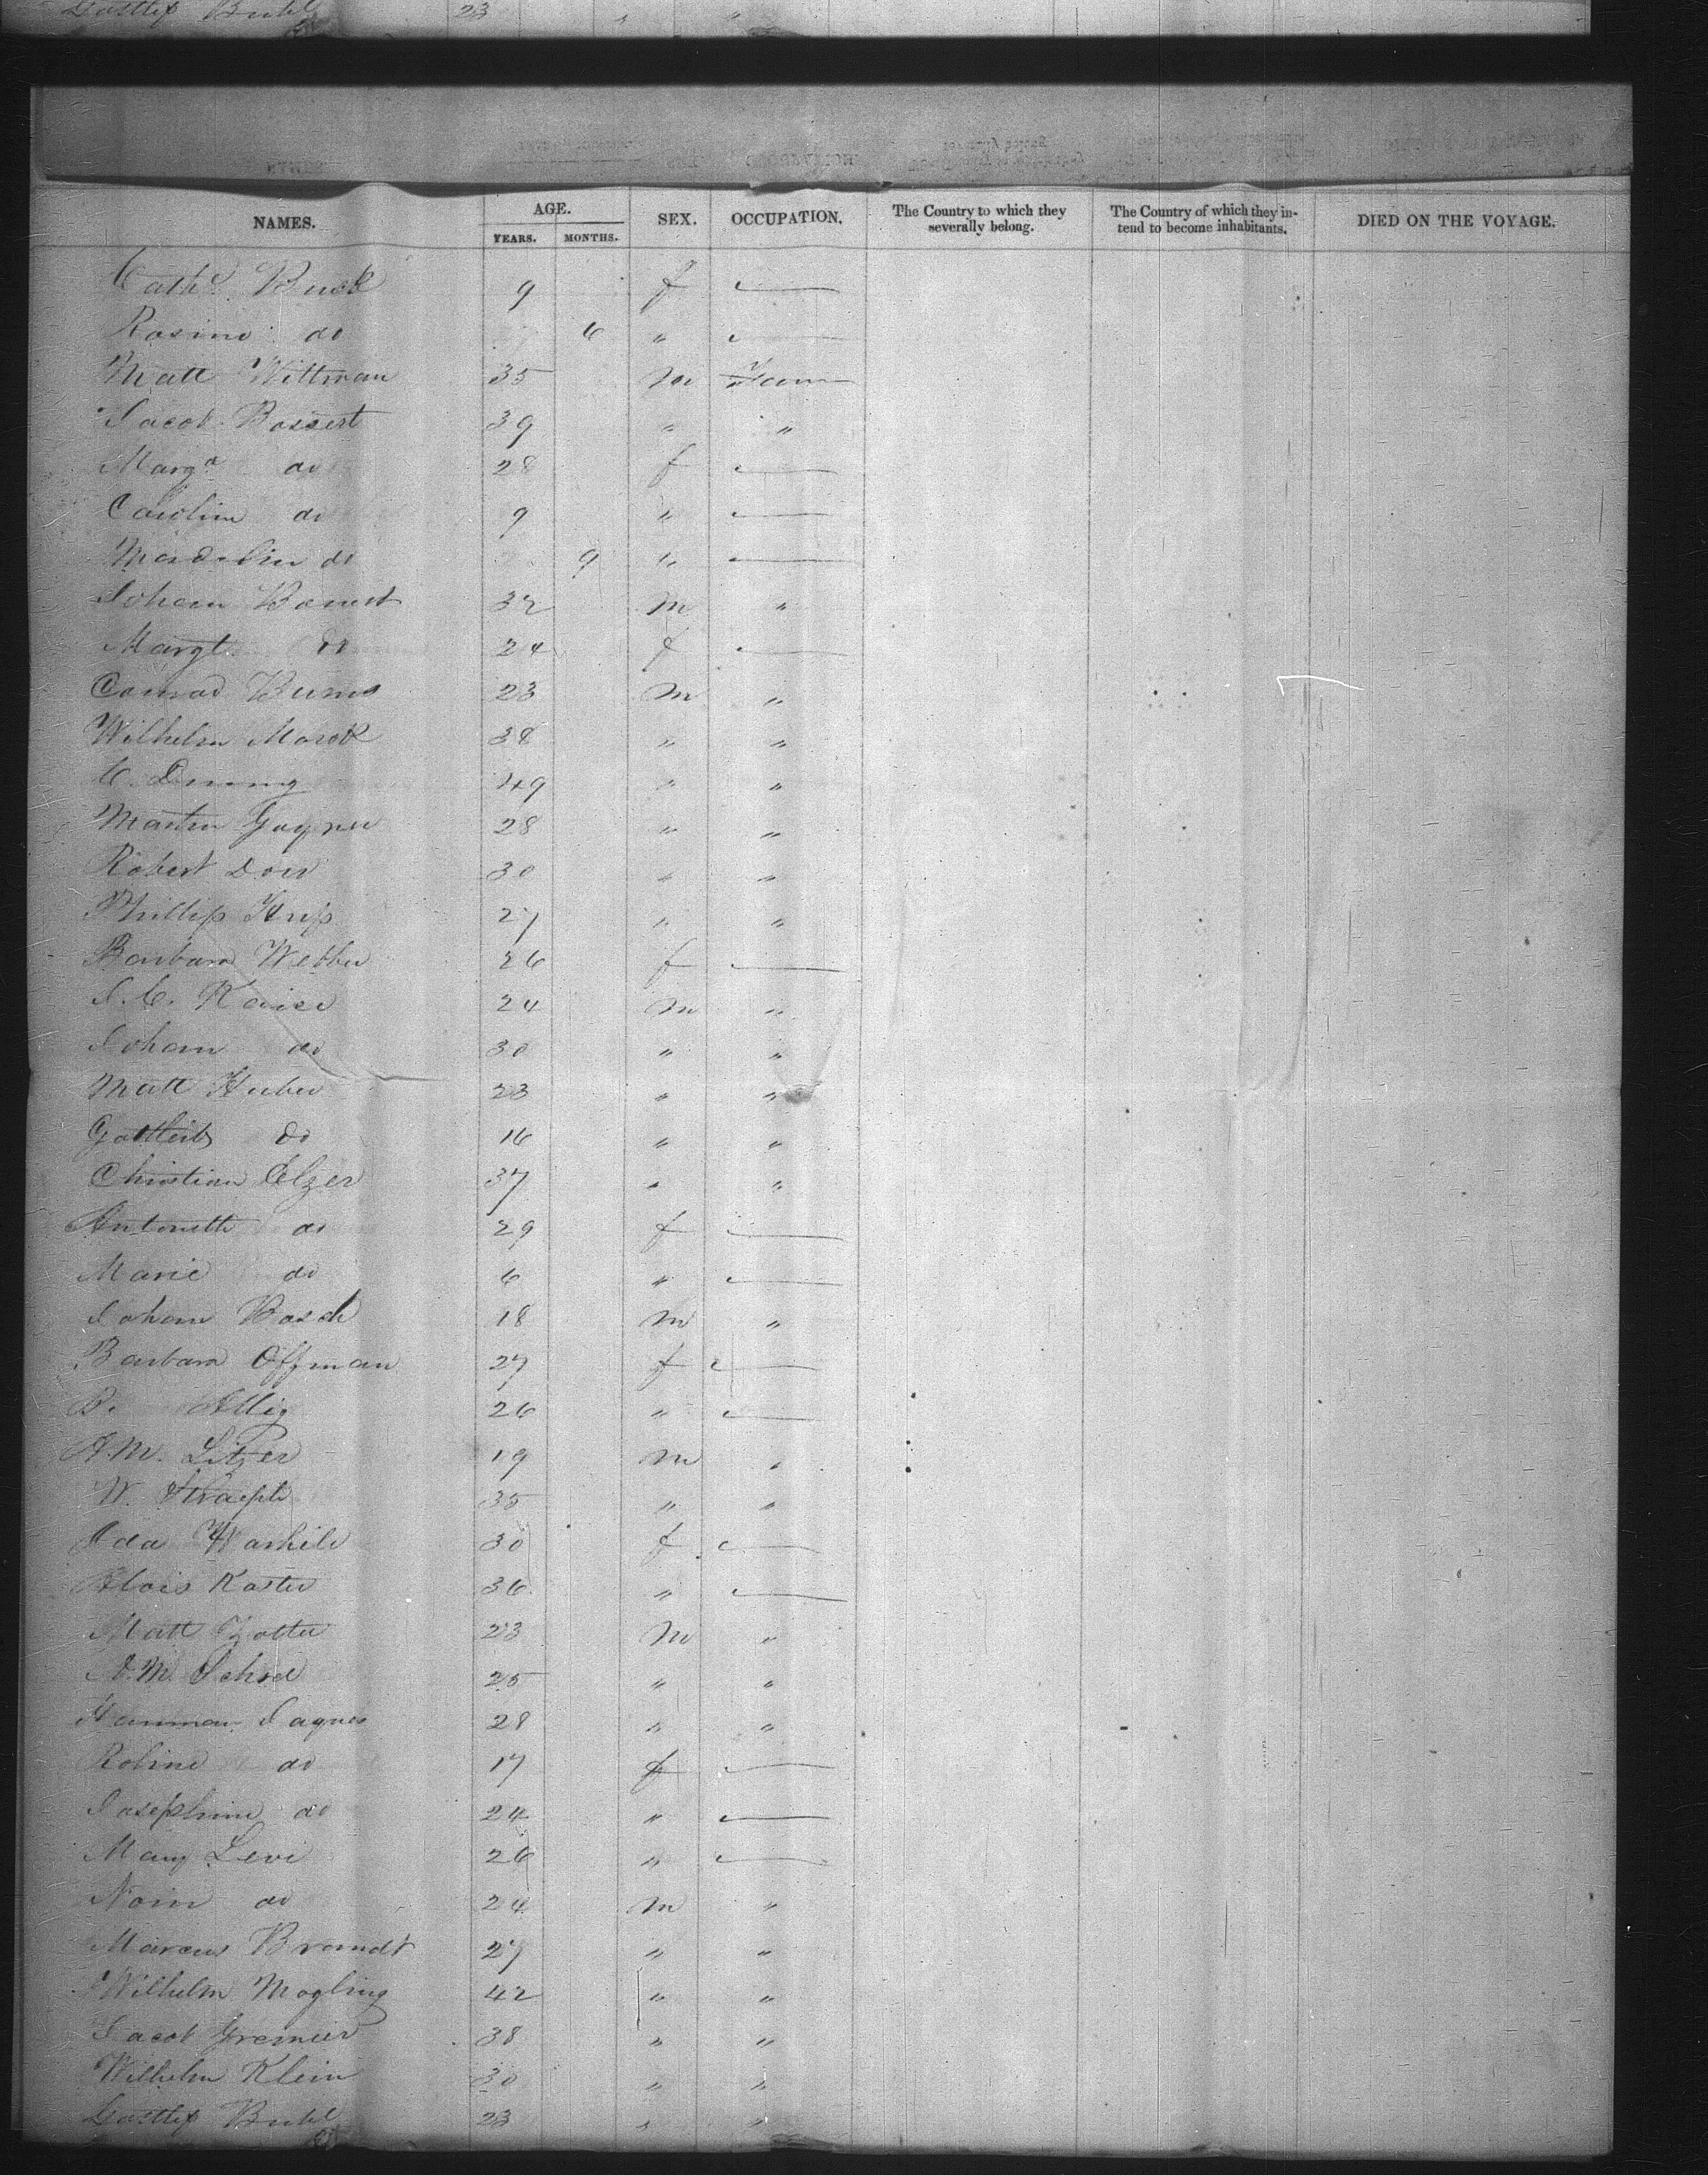 Gottlip Buhl 23 " "
NAMES. AGE. YEARS. MONTHS. SEX. OCCUPATION. The Country to which they severally belong. The Country of which they intend to become inhabitants. DIED ON THE VOYAGE.
Cath. Buck 9 f —
Rosine do 6 " —
Matt Wittman 35 m Farm
Jacob Bossert 39 " "
Marga do 28 f —
Carolin do 9 " —
Madalin do 9 " —
Johann 32 m "
Margt do 24 f —
Conrad Burns 23 m "
Wilhelm 38 " "
C. 49 " "
Martin 28 " "
Robert Dorr 30 " "
Phillip 27 " "
Barbara Webber 26 f —
J. C. Kaiser 24 m "
Johann do 30 " "
Matt Huber 23 " "
Gottleib do 16 " "
Christian Elzer 37 " "
Antonette do 29 f —
Marie do 6 " —
Johann Bosch 18 m "
Barbara Offman 27 f —
B. Illig 26 " —
A. M. Litzer 19 m "
W. 35 " "
Ida 30 f —
Alois Koster 36 " —
Matt Zotter 23 m "
A. M. 25 " "
Jaques 28 " "
Roline do 17 f —
Josephine do 24 " —
Mary Levi 26 " —
do 24 m "
Marcus Brandt 27 " "
Wilhelm Mogling 42 " "
Jacob Gremier 38 " "
Wilhelm Klein 30 " "
Gottlip Buhl 23 " "